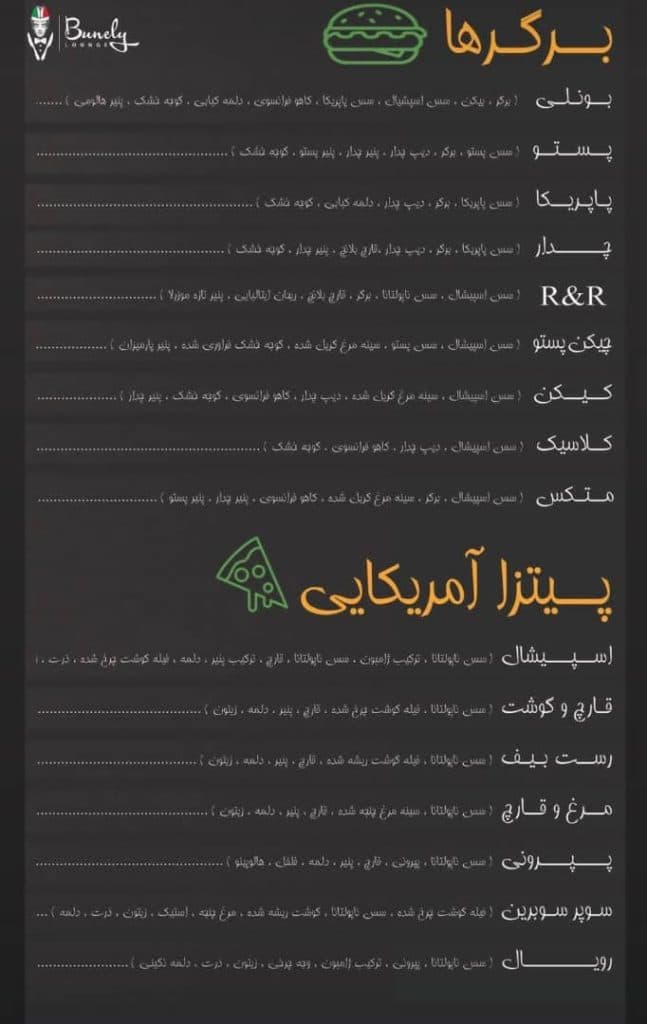 Bunely
LOUNGE
برگرها
بونلی ( برگر ، بیکن ، سس اسپشیال ، سس پاپریکا ، کاهو فرانسوی ، دلمه کبابی ، گوجه خشک ، پنیر هالومی ) .......
پستو ( سس پستو ، برگر ، دیپ چدار ، پنیر چدار ، پنیر پستو ، گوجه خشک )
پاپریکا ( سس پاپریکا ، برگر ، دیپ چدار ، دلمه کبابی ، گوجه خشک )
چدار ( سس پاپریکا ، برگر ، دیپ چدار ،قارچ بلانچ ، پنیر چدار ، گوجه خشک )
R&R ( سس اسپیشال ، سس ناپولتانا ، برگر ، قارچ بلانچ ، ریحان ایتالیایی ، پنیر تازه موزرلا )
چیکن پستو ( سس اسپیشال ، سس پستو ، سینه مرغ گریل شده ، گوجه خشک فراوری شده ، پنیر پارمیزان )
کیکن ( سس اسپیشال ، سینه مرغ گریل شده ، دیپ چدار ، کاهو فرانسوی ، گوجه خشک ، پنیر چدار )
کلاسیک ( سس اسپیشال ، دیپ چدار ، کاهو فرانسوی ، گوجه خشک )
متکس ( سس اسپیشال ، برگر ، سینه مرغ گریل شده ، کاهو فرانسوی ، پنیر چدار ، پنیر پستو )
پیتزا آمریکایی
اسپیشال ( سس ناپولتانا ، ترکیب ژامبون ، سس ناپولتانا ، قارچ ، ترکیب پنیر ، دلمه ، فیله گوشت چرخ شده ، ذرت ،
قارچ و گوشت ( سس ناپولتانا ، فیله گوشت چرخ شده ، قارچ ، پنیر ، دلمه ، زیتون )
رست بیف ( سس ناپولتانا ، فیله گوشت ریشه شده ، قارچ ، پنیر ، دلمه ، زیتون )
مرغ و قارچ ( سس ناپولتانا ، سینه مرغ پخته شده ، قارچ ، پنیر ، دلمه ، زیتون )
پپرونی ( سس ناپولتانا ، پپرونی ، قارچ ، پنیر ، دلمه ، فلفل ، هالوپینو )
سوپر سوبرین ( فیله گوشت چرخ شده ، سس ناپولتانا ، گوشت ریشه شده ، مرغ پخته ، استیک ، زیتون ، ذرت ، دلمه ) ...
رویال ( سس ناپولتانا ، پپرونی ، ترکیب ژامبون ، ، زیتون ، ذرت ، دلمه نگینی )